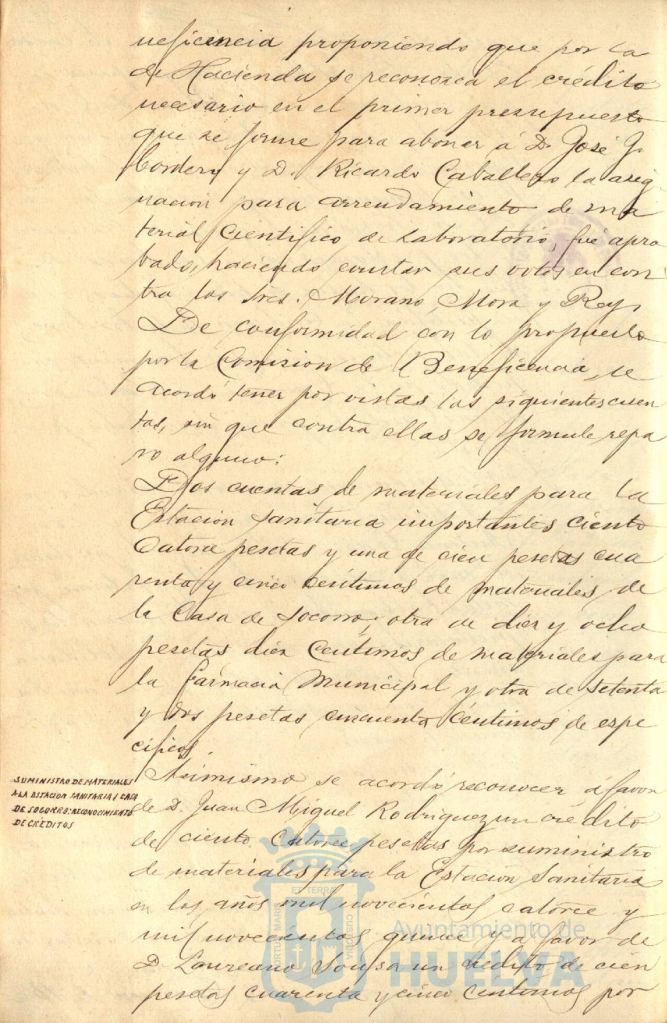 neficencia proponiendo que por la
de Hacienda se reconozca el crédito
necesario en el primer presupuesto
que se forme para abonar á D. José J.
Cordero y D. Ricardo Caballero la asig
nación para arrendamiento de ma
terial Cientifico de Laboratorio, fué apro
bado, haciendo constar sus votos en con
tra los Sres. Morano, Mora y Rey,
De conformidad con lo propuesto
por la Comision de Beneficencia, se
acordó tener por vistas las siguientes cuen
tas, sin que contra ellas se formule repa
ro alguno:
Dos cuentas de materiales para la
Estacion Sanitaria importantes ciento
catorce pesetas y una de cien pesetas cua
renta y cinco centimos de materiales de
la Casa de Socorro; otra de diez y ocho
pesetas diez Centimos de materiales para
la Farmacia Municipal y otra de setenta
y dos pesetas cincuenta céntimos de espe
cificos.
SUMINISTRO DE MATERIALES
A LA ESTACION SANITARIA Y CASA
DE SOCORRO: RECONOCIMIENTO
DE CRÉDITOS
Asimismo se acordó reconocer á favor
de D. Juan Miguel Rodriguez un crédito
de ciento catorce pesetas por suministro
de materiales para la Estacion Sanitaria
en los años mil novecientos catorce y
mil novecientos quince y a favor de
D. Laureano Sousa un credito de cien
pesetas cuarenta y cinco centimos por
PORTUS MARIS
ET TERRE
CUSTODIA
Ayuntamiento de
HUELVA